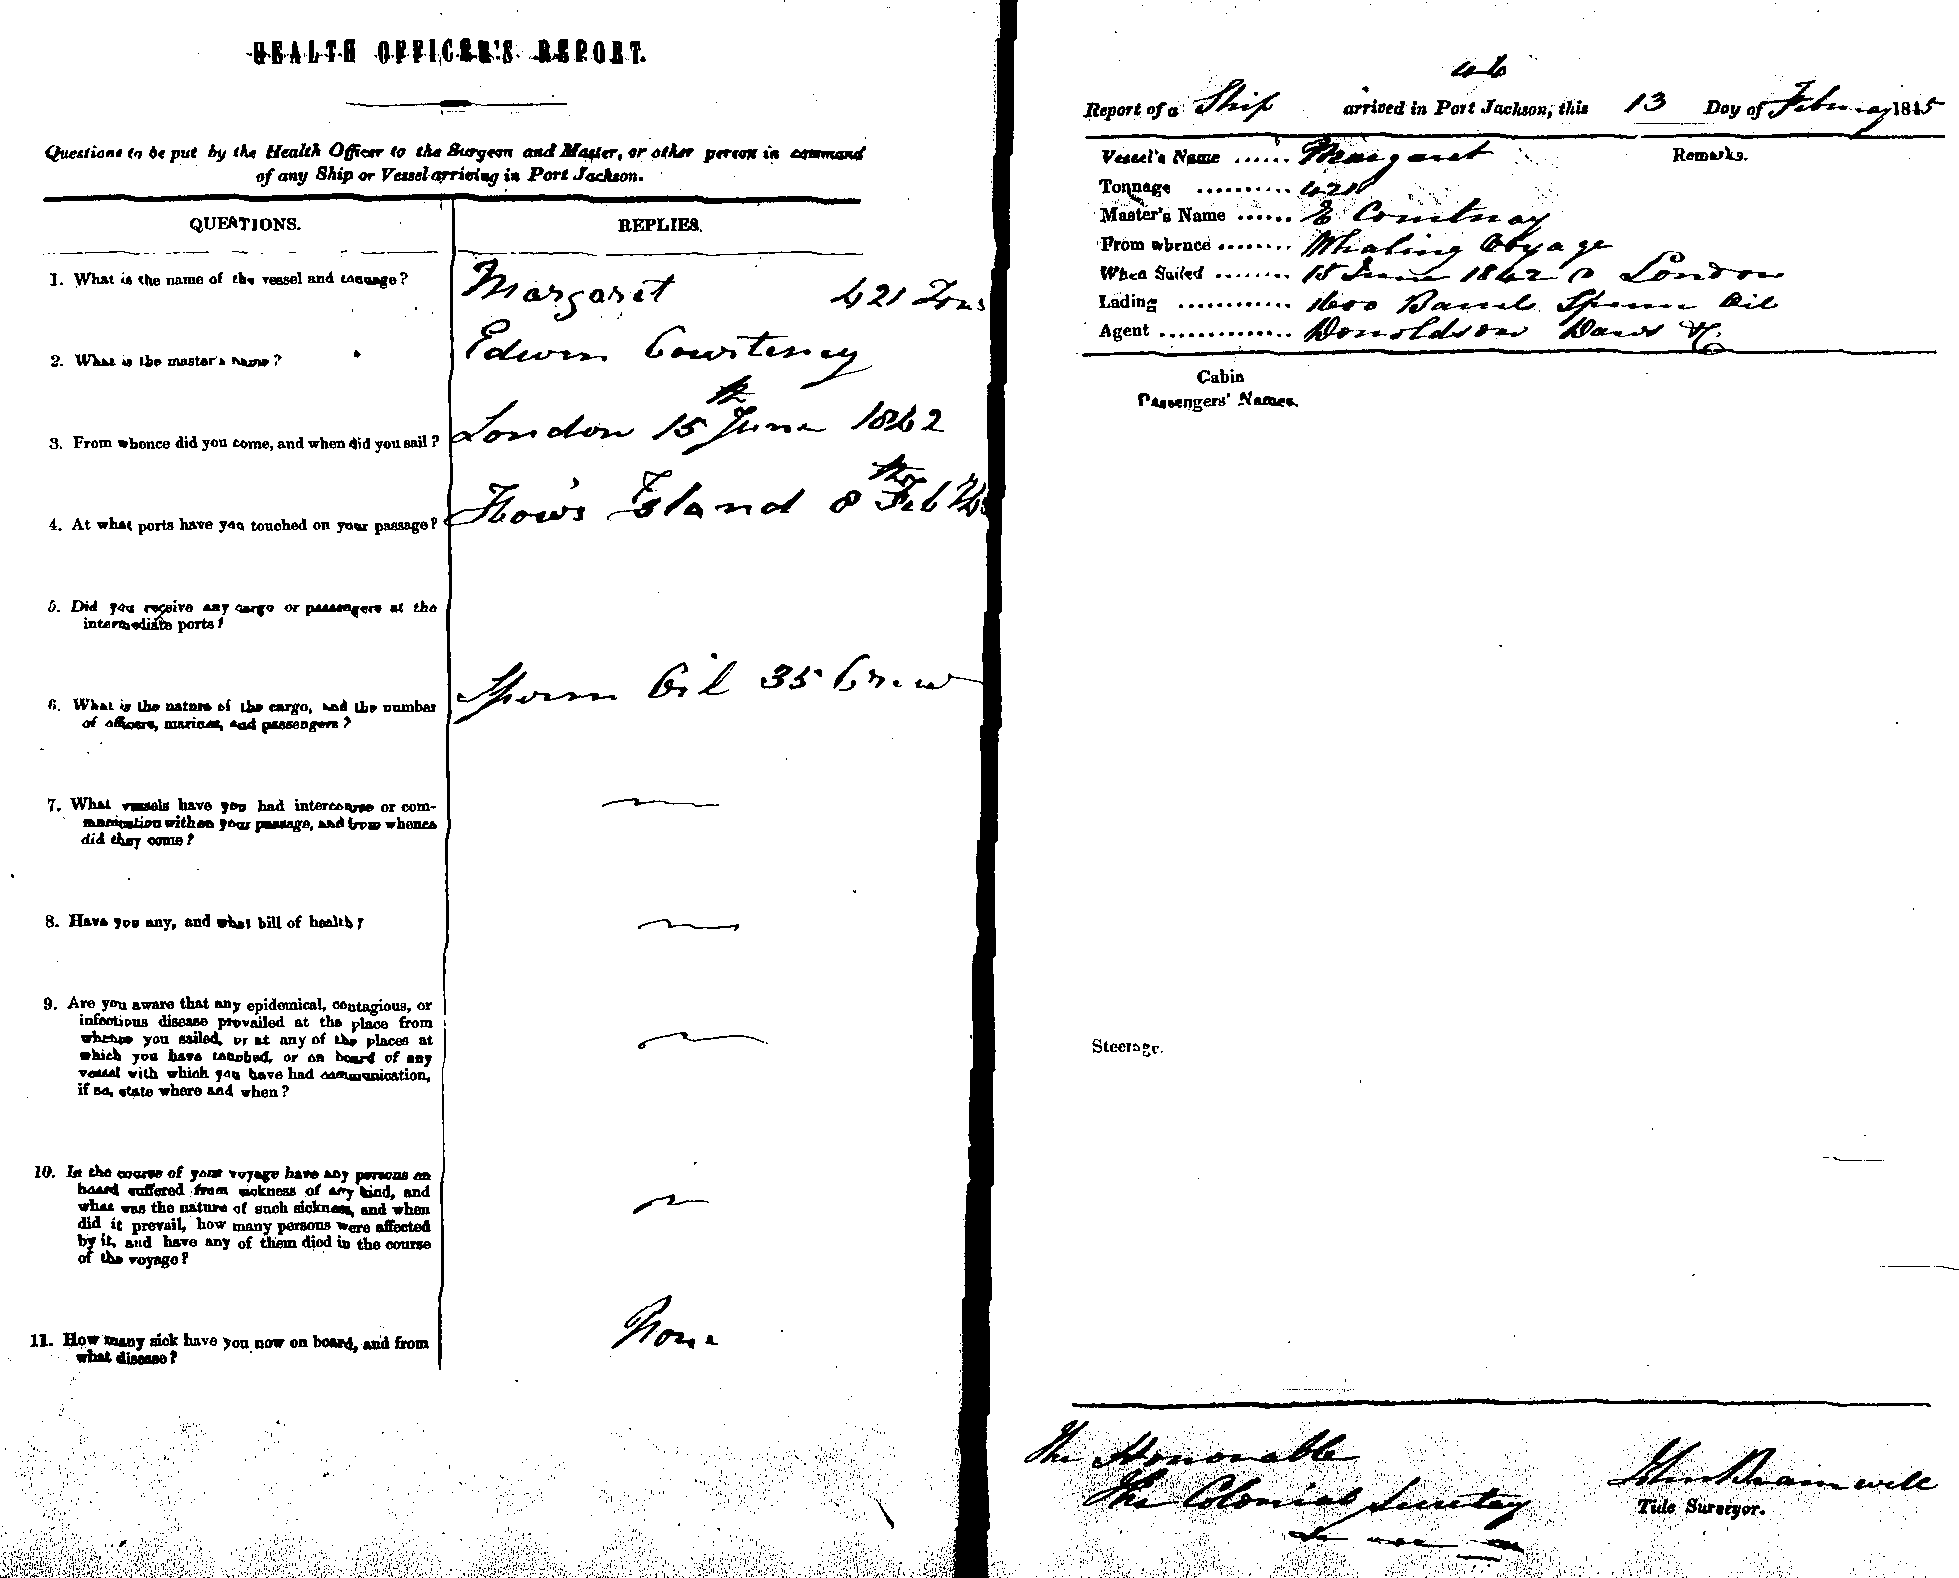 HEALTH OFFICER'S REPORT.
Questions to be put by the Health Officer to the Surgeon and Master, or other person in command
of any Ship or Vessel arriving in Port Jackson.
QUESTIONS.
REPLIES.
1. What is the name of the vessel and tonnage?
Margaret 421 Tons
2. What is the master's name?
Edwin Courteney
3. From whence did you come, and when did you sail?
London 15th June 1842
4. At what ports have you touched on your passage?
How's Island 8th Feb
5. Did you receive any cargo or passengers at the
intermediate ports?
6. What is the nature of the cargo, and the number
of officers, mariners, and passengers?
Sperm Oil 35 Crew
7. What vessels have you had intercourse or com-
munication with on your passage, and from whence
did they come?
8. Have you any, and what bill of health?
9. Are you aware that any epidemical, contagious, or
infectious disease prevailed at the place from
whence you sailed, or at any of the places at
which you have touched, or on board of any
vessel with which you have had communication,
if so, state where and when?
10. In the course of your voyage have any persons on
board suffered from sickness of any kind, and
what was the nature of such sickness, and when
did it prevail, how many persons were affected
by it, and have any of them died in the course
of the voyage?
11. How many sick have you now on board, and from
what disease?
None
46
Report of a Ship arrived in Port Jackson, this 13 Day of February 1845
Vessel's Name ...... Margaret
Remarks.
Tonnage .......... 421
Master's Name ...... E Courtnay
From whence ........ Whaling Voyage
When Sailed ........ 15 June 1842 London
Lading ............ 1600 Barrels Sperm Oil
Agent .............. Donoldson Daws & Co
Cabin
Passengers' Names.
Steerage.
The Honorable
The Colonial Secretary
John Bramwell
Tide Surveyor.